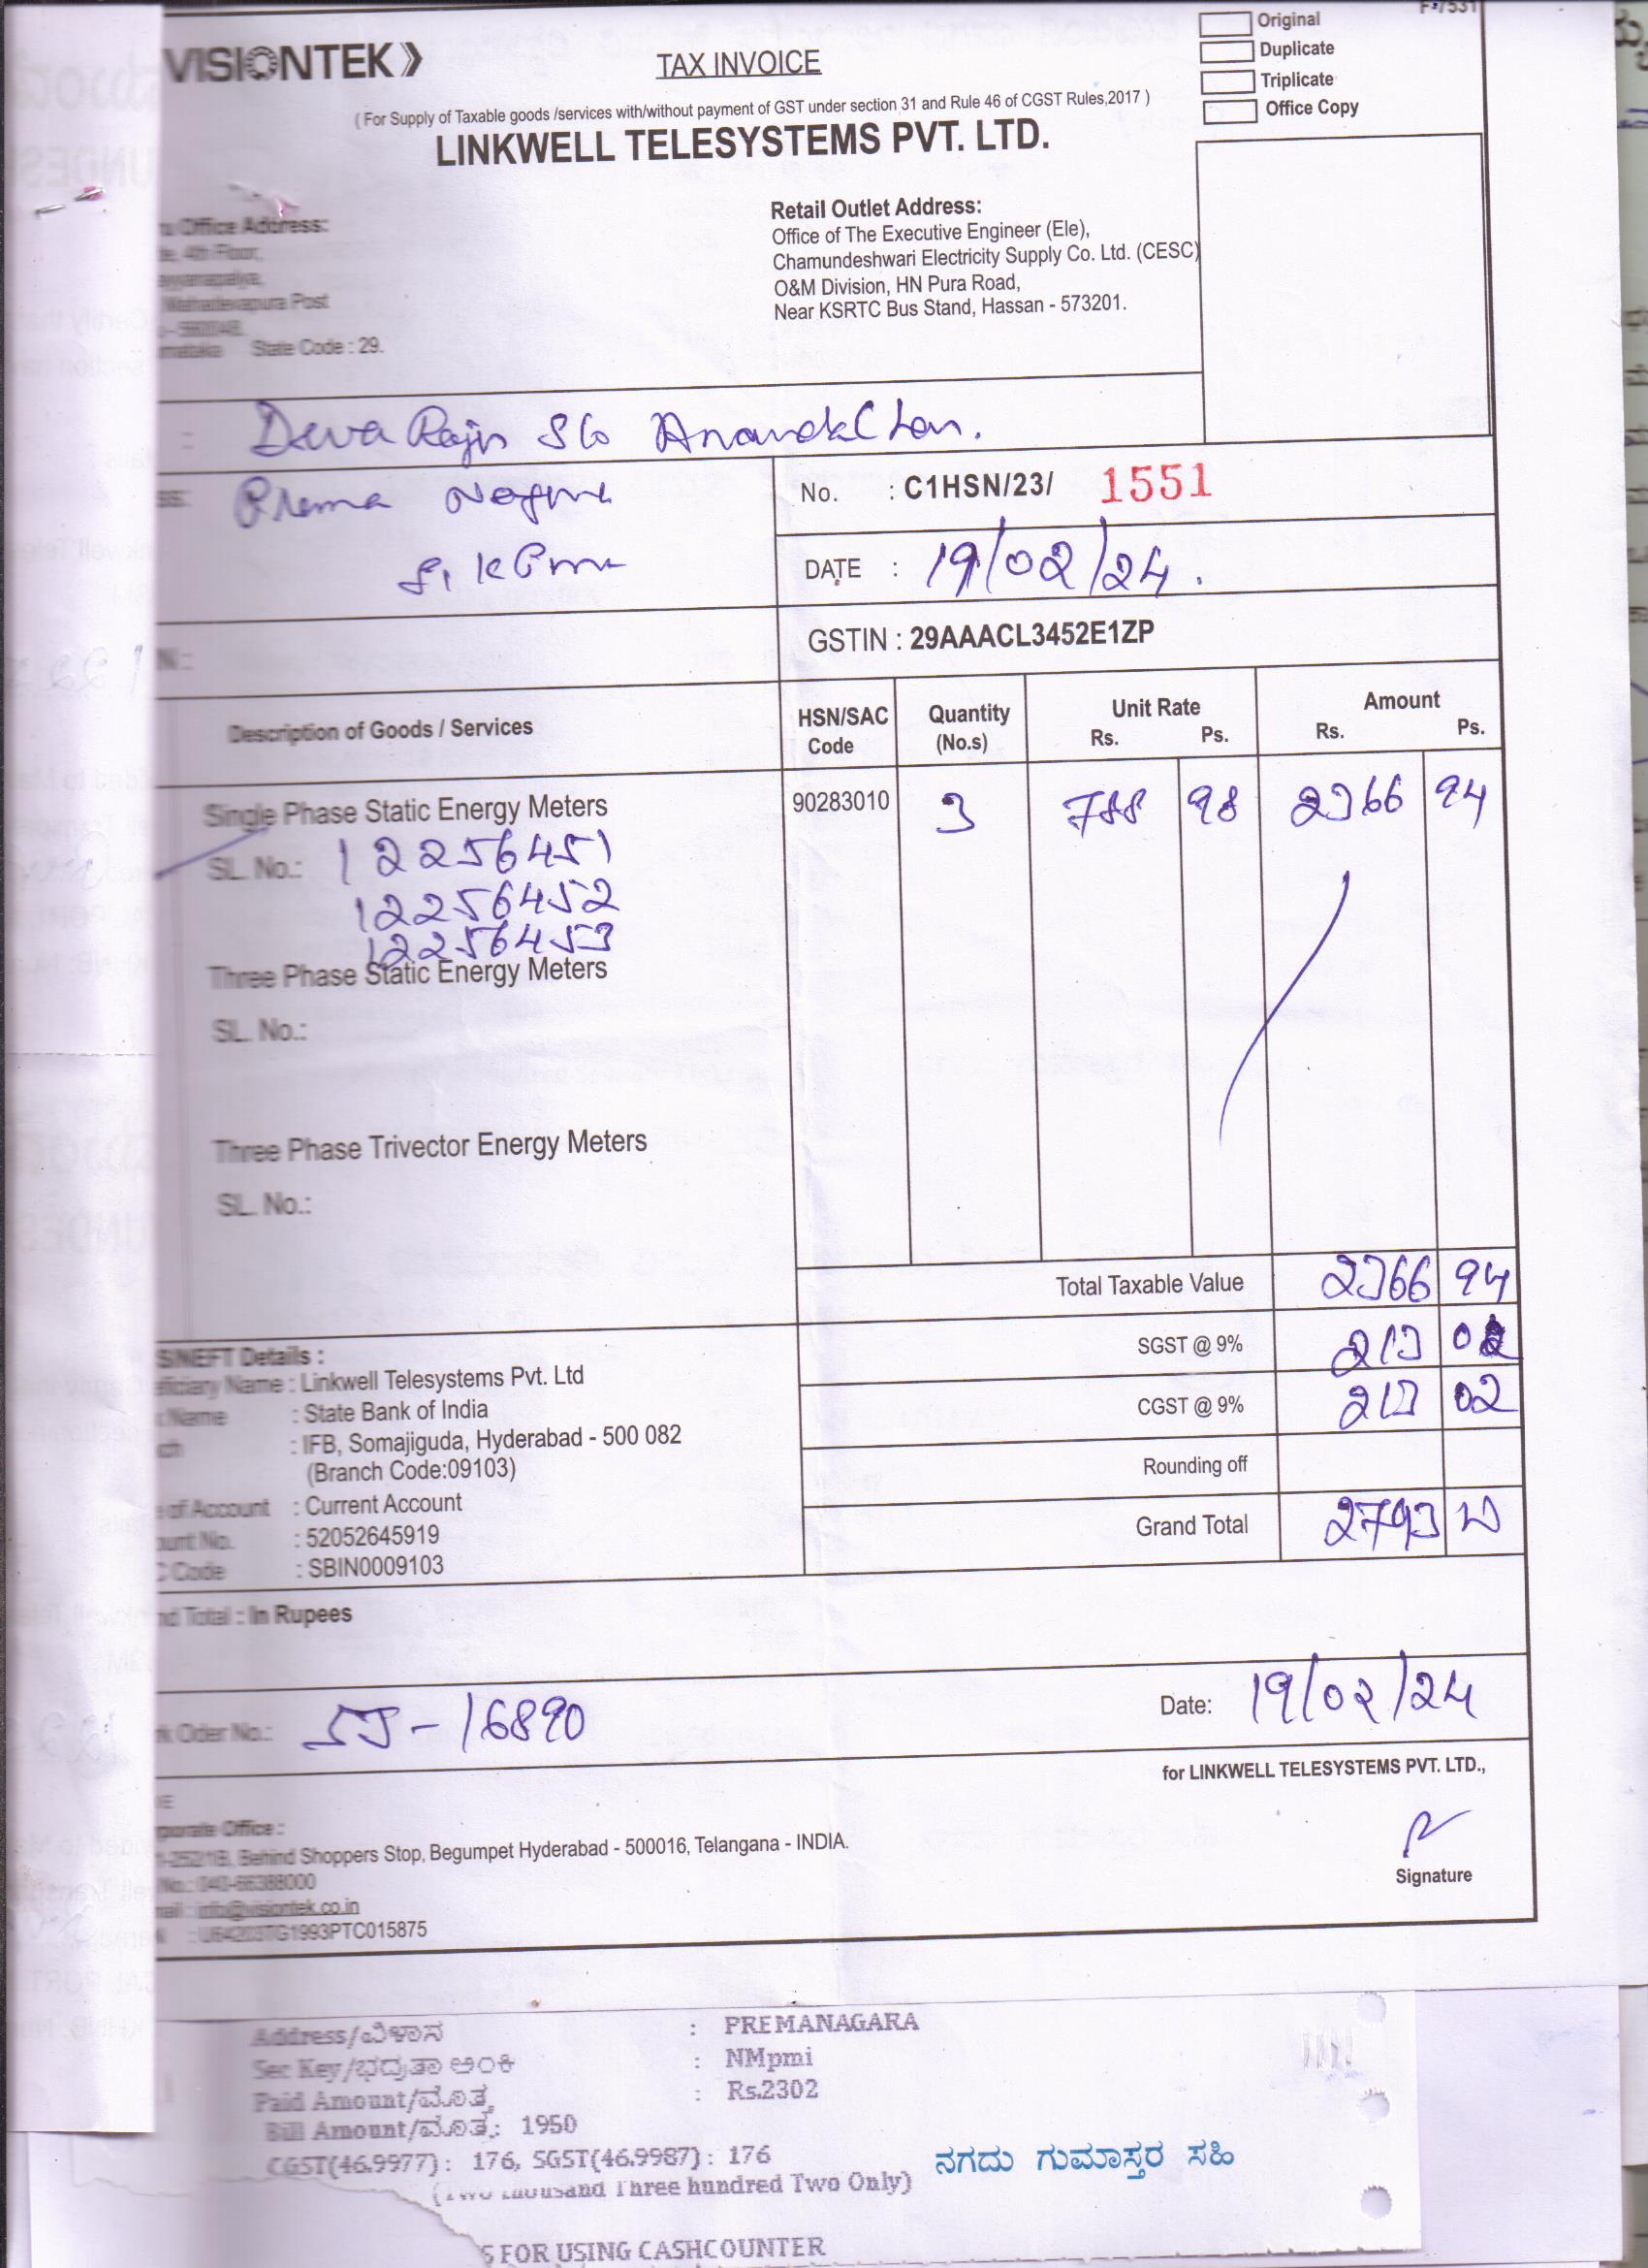 VISIONTEK
TAX INVOICE
Original
Duplicate
Triplicate
Office Copy
( For Supply of Taxable goods /services with/without payment of GST under section 31 and Rule 46 of CGST Rules,2017 )
LINKWELL TELESYSTEMS PVT. LTD.
Office Address:
4th Floor,
Mahadevapura Post
State Code : 29.
Retail Outlet Address:
Office of The Executive Engineer (Ele),
Chamundeshwari Electricity Supply Co. Ltd. (CESC)
O&M Division, HN Pura Road,
Near KSRTC Bus Stand, Hassan - 573201.
: Deva Raju S/o
Prema
No. : C1HSN/23/ 1551
DATE : 19/02/24.
GSTIN : 29AAACL3452E1ZP
Description of Goods / Services HSN/SAC Code Quantity (No.s) Unit Rate Rs. Ps. Amount Rs. Ps.
Single Phase Static Energy Meters 90283010 3 788 98 2366 94
SL. No.: 12256451
12256452
12256453
Three Phase Static Energy Meters
SL. No.:
Three Phase Trivector Energy Meters
SL. No.:
Total Taxable Value 2366 94
SGST @ 9% 213 02
CGST @ 9% 213 02
Rounding off
Grand Total 2793
S/NEFT Details :
Name : Linkwell Telesystems Pvt. Ltd
Name : State Bank of India
: IFB, Somajiguda, Hyderabad - 500 082
(Branch Code:09103)
of Account : Current Account
No. : 52052645919
Code : SBIN0009103
Total : In Rupees
Oder No.: SJ-16890
Date: 19/02/24
for LINKWELL TELESYSTEMS PVT. LTD.,
Signature
Office :
Behind Shoppers Stop, Begumpet Hyderabad - 500016, Telangana - INDIA.
No.: 040-66388000
info@visiontek.co.in
: U64203TG1993PTC015875
Address/ವಿಳಾಸ : PREMANAGARA
Sec Key/ಭದ್ರತಾ ಅಂಕಿ : NMpmi
Paid Amount/ಮೊತ್ತ : Rs.2302
Bill Amount/ಮೊತ್ತ: 1950
CGST(46.9977): 176, SGST(46.9987): 176
(Two thousand Three hundred Two Only)
ನಗದು ಗುಮಾಸ್ತರ ಸಹಿ
FOR USING CASHCOUNTER